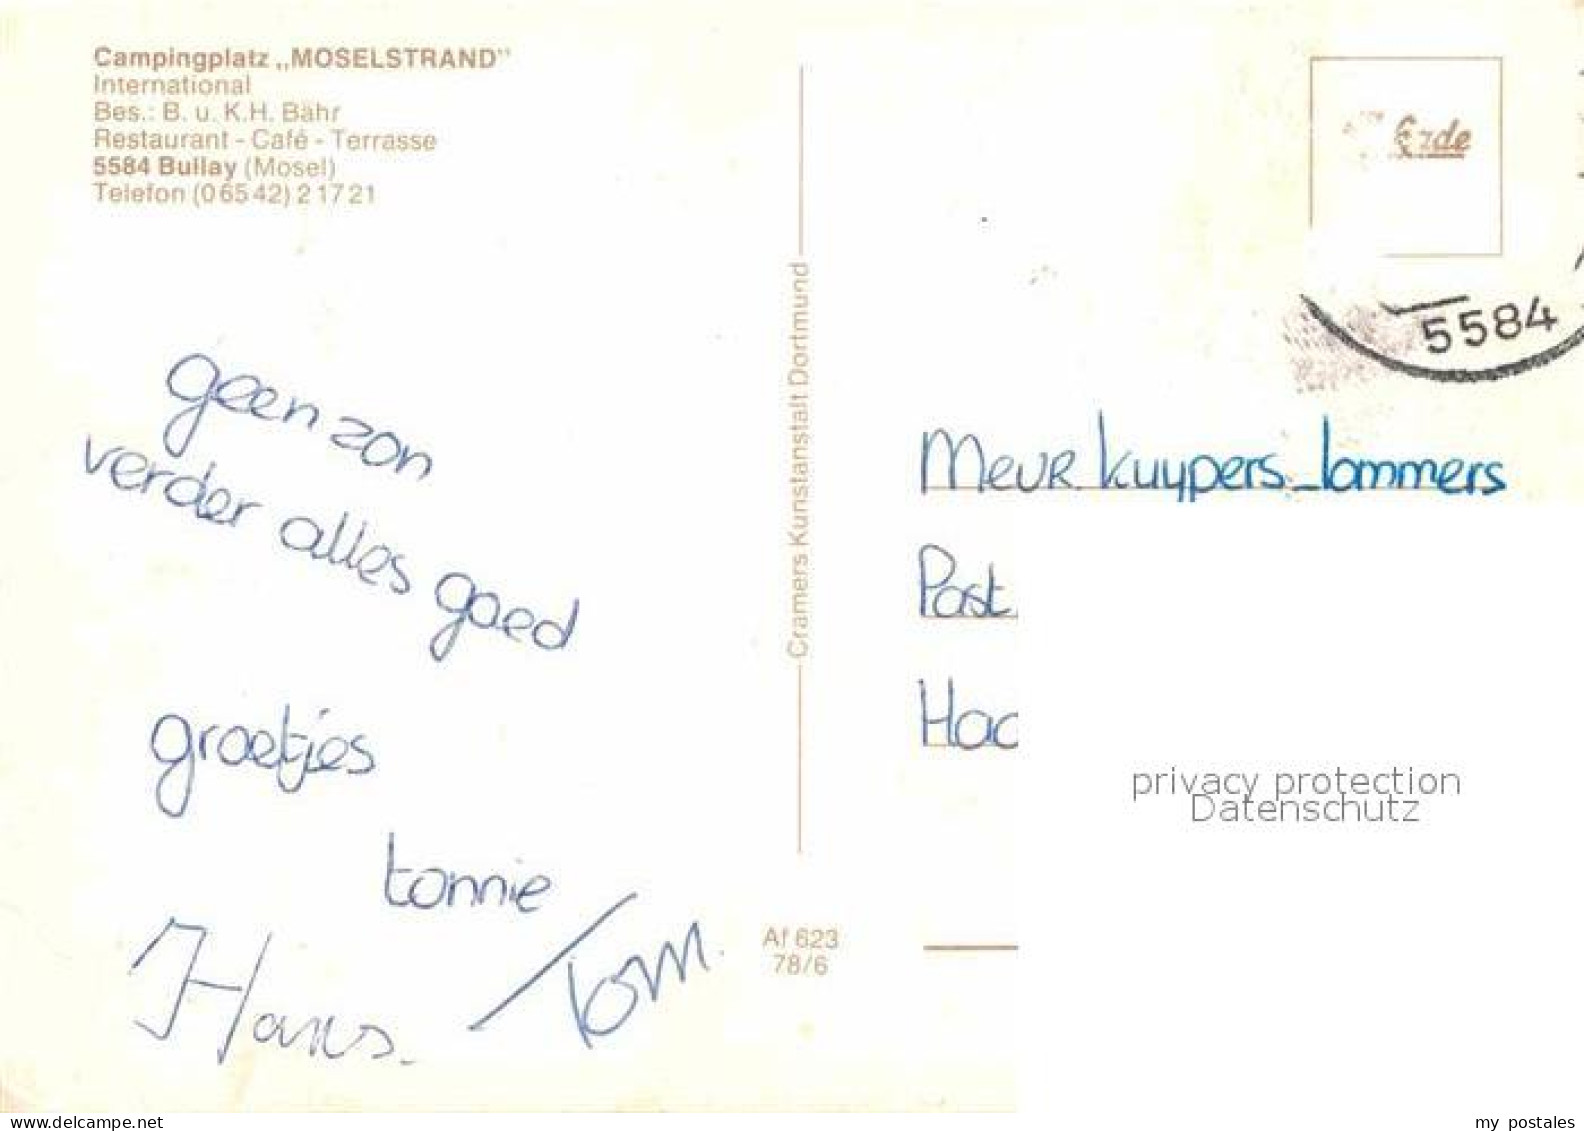 Campingplatz „MOSELSTRAND"
International
Bes.: B. u. K.H. Bähr
Restaurant - Café - Terrasse
5584 Bullay (Mosel)
Telefon (0 65 42) 2 17 21
geen zon
verder alles goed
groetjes
tonnie
Hans.
Tom.
Cramers Kunstanstalt Dortmund
Af 623
78/6
5584
Mevr. Kuypers_lommers
Post.
privacy protection
Datenschutz
my postales